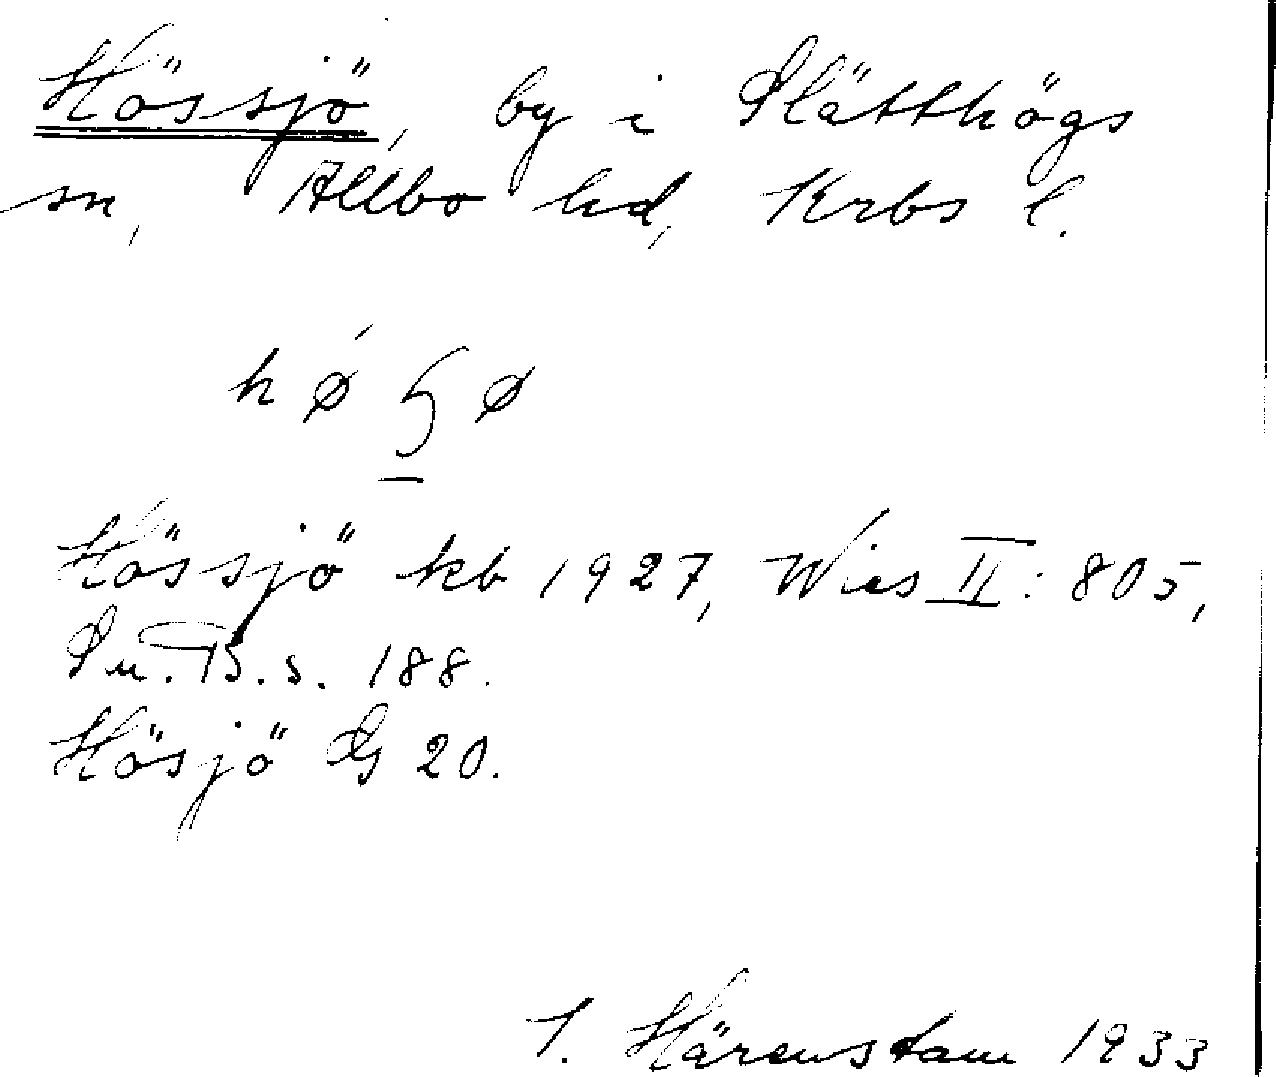 Hössjö, by i Slätthögs
sn, Allbo hd, Krbs l.
Hössjö kb 1927, Wies II: 805,
Su. B. s. 188.
Hösjö GS 20.
I. Härenstam 1933